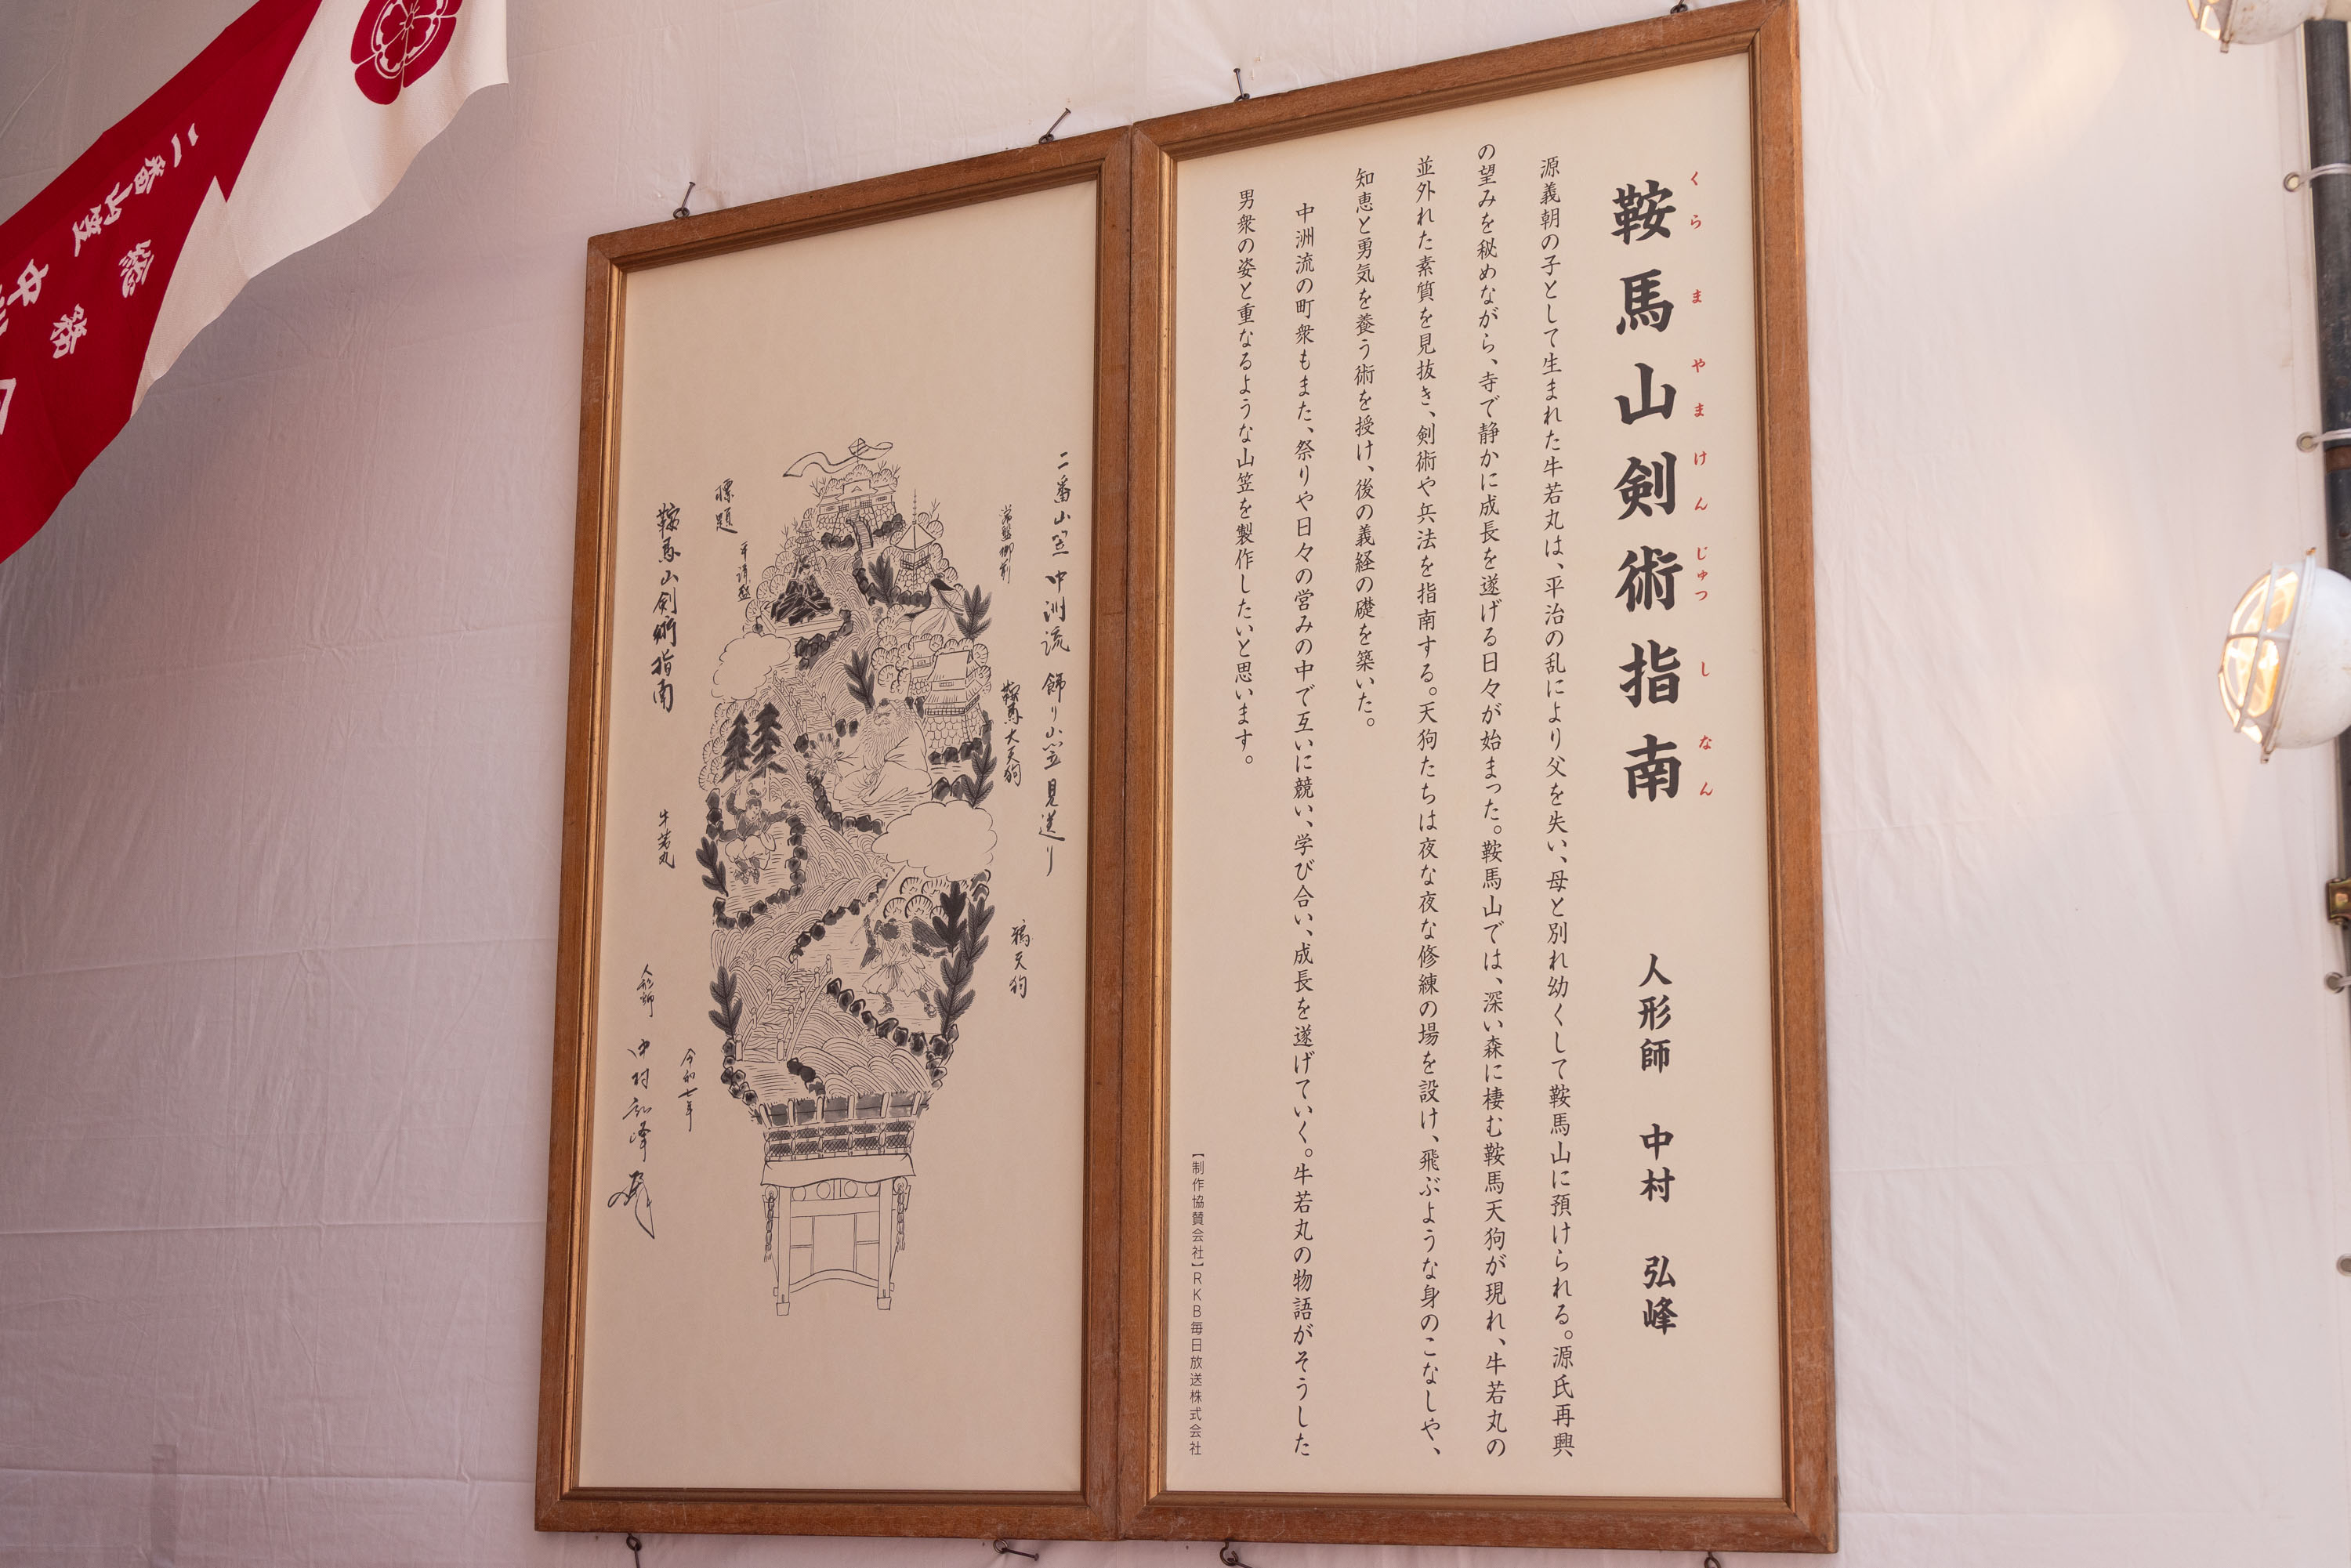 鞍馬山剣術指南
くらまやまけんじゅつしなん
人形師 中村 弘峰
源義朝の子として生まれた牛若丸は、平治の乱により父を失い、母と別れ幼くして鞍馬山に預けられる。源氏再興
の望みを秘めながら、寺で静かに成長を遂げる日々が始まった。鞍馬山では、深い森に棲む鞍馬天狗が現れ、牛若丸の
並外れた素質を見抜き、剣術や兵法を指南する。天狗たちは夜な夜な修練の場を設け、飛ぶような身のこなしや、
知恵と勇気を養う術を授け、後の義経の礎を築いた。
中洲流の町衆もまた、祭りや日々の営みの中で互いに競い、学び合い、成長を遂げていく。牛若丸の物語がそうした
男衆の姿と重なるような山笠を製作したいと思います。
【制作協賛会社】RKB毎日放送株式会社
二番山笠 中洲流 飾り山笠 見送り
常盤御前
鞍馬大天狗
鴉天狗
標題
平清盛
鞍馬山剣術指南
牛若丸
令和七年
人形師 中村弘峰
二番山笠
総務
中